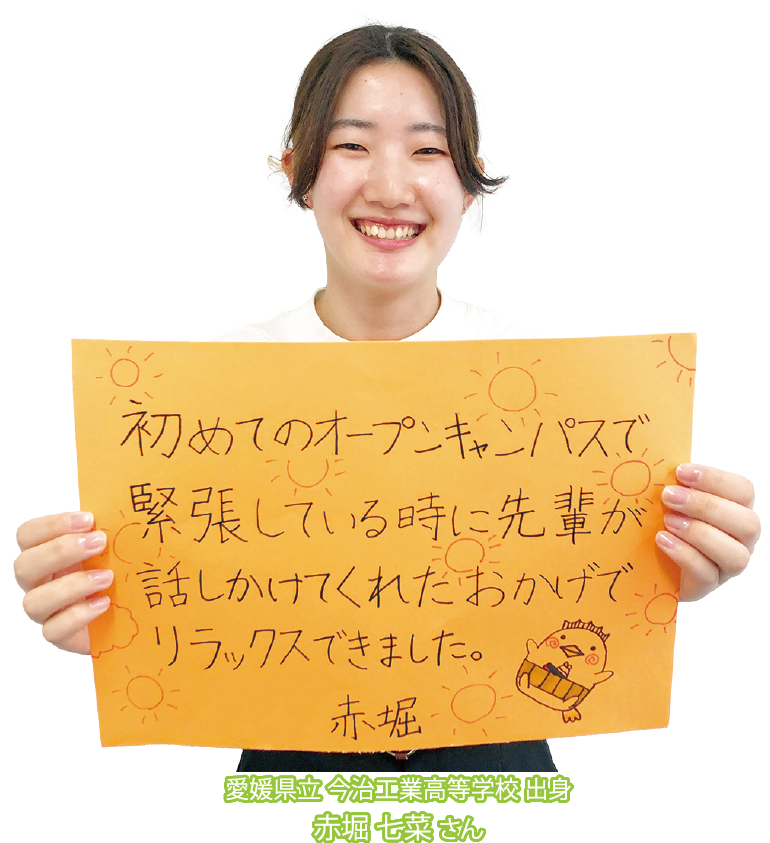 初めてのオープンキャンパスで
緊張している時に先輩が
話しかけてくれたおかげで
リラックスできました。
赤堀
愛媛県立 今治工業高等学校 出身
赤堀 七菜 さん